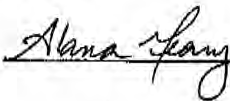 Alana Geary